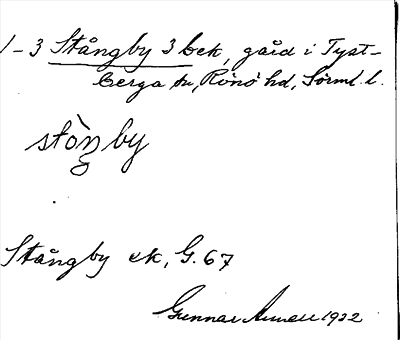 1-3 Stångby 3 bek, gård i Tyst-
berga sn, Rönö hd, Sörml. l.
stòŋby
Stångby ek, G. 67
Gunnar 1922